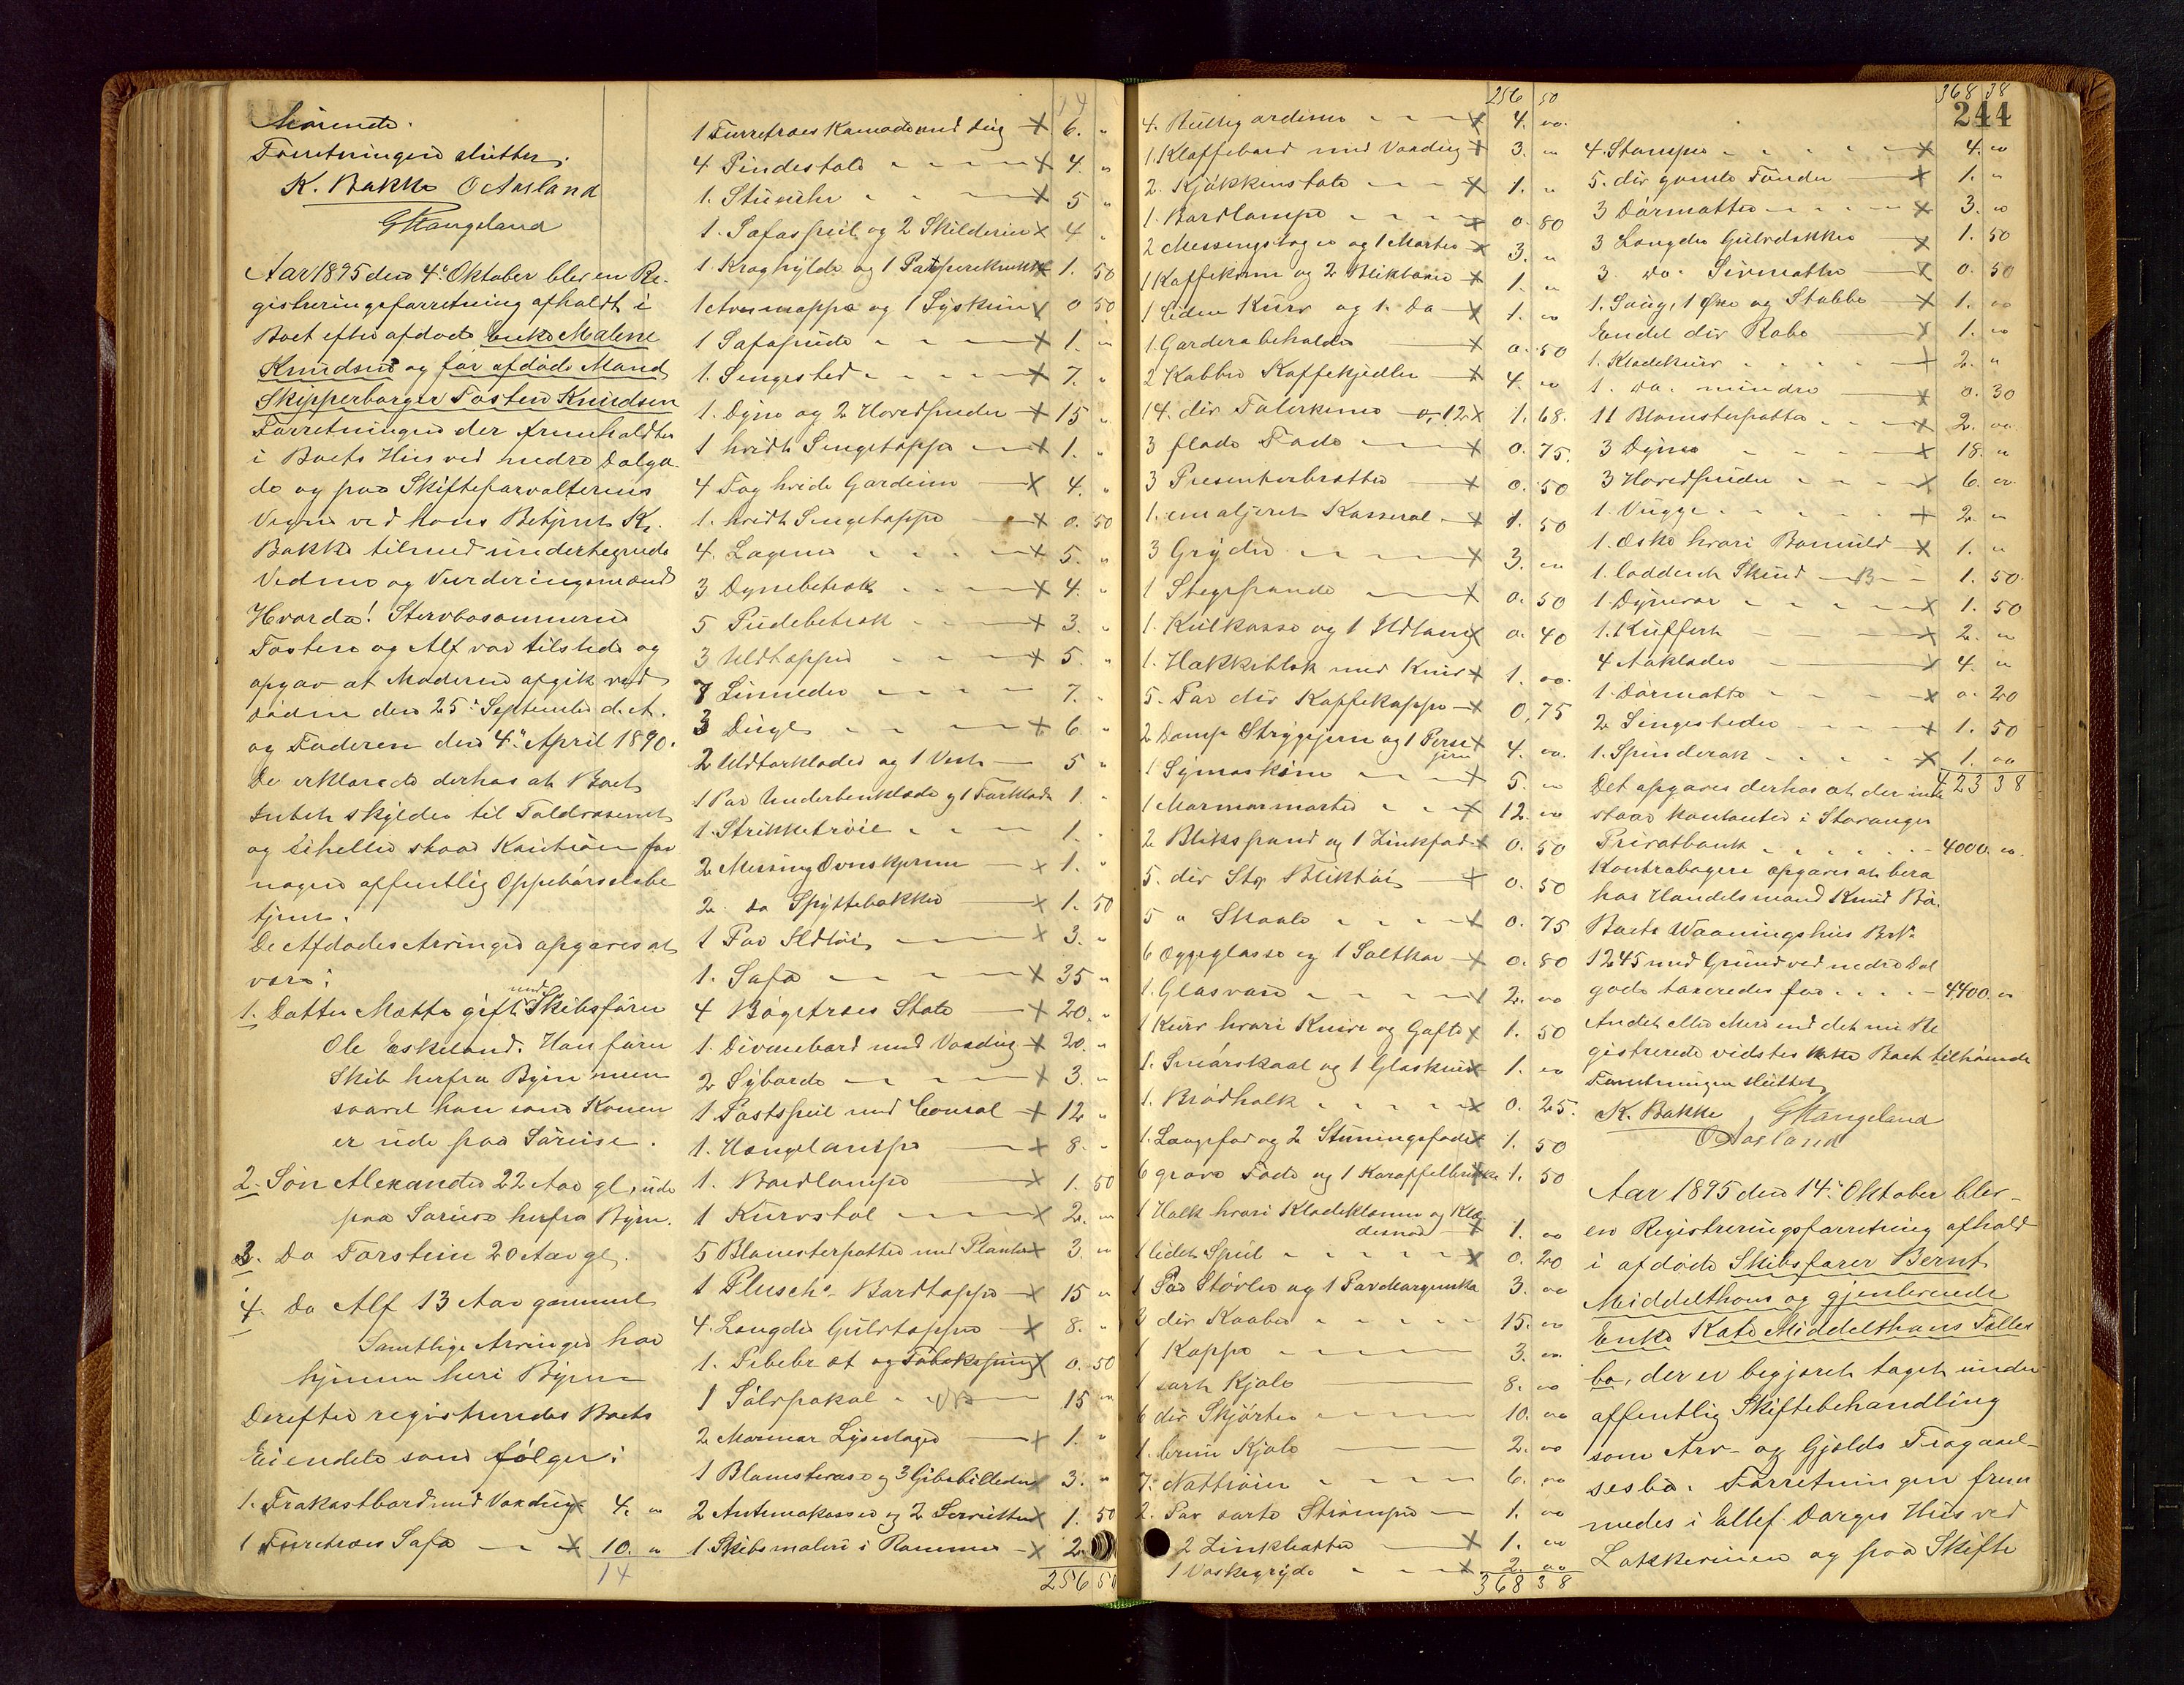 hørende.
Forretningen sluttet.
K. Bakke O Aasland
G Haugeland
Aar 1895 den 4' Oktober blev en Re-
gistreringsforretning afholdt i
Boet efter afdøde Enke Malene
Knudsen og før afdøde Mand
Skipperborger Tosten Knudsen
Forretningen der fremholdtes
i Boets Hus ved nedre Dalga-
de og paa Skifteforvalterens
Vegne ved hans Betjent K.
Bakke tilmed undertegnede
Vidner og Vurderingsmænd
Hvorda! Stervbosønnerne
Tosten og Alf var tilstede og
opgav at Moderen afgik ved
døden den 25' September d. A.
og Faderen den 4' April 1890.
De erklærede derhos at Boet
Intet skylder til Toldvæsenet
og eiheller staar Kaution for
nogen offentlig Oppebørselsbe
tjent.
De Afdødes Arvinger opgaves at
være:
1. Datter Mette gift med Skibsfører
Ole Eskeland. Han fører
Skib herfra Byen men
saavel han som Konen
er ude paa Søreise.
2. Søn Alexander 22 Aar gl. ude
paa Søreise herfra Byen.
3. Do Torstein 20 Aar gl.
4. Do Alf 13 Aar gammel
Samtlige Arvinger har
hjemme heri Byen
Derefter registreredes Boets
Eiendele som følger:
1. Frokostbord med Voxdug x 4. "
1 Furetræes Sofa x 10. "
14
14
1 Furretræes Komode med dug x 6. "
4 Pindestole x 4. "
1. Stueuhr x 5 "
1. Sofaspeil og 2 Skilderier x 4 "
1 Kroghylde og 1 x 1. 50
1 og 1 Syskrin x 0 50
1 Sofapude x 1. "
1. Sengested x 7. "
1. Dyne og 2 Hovedpuder x 15 "
1 hvidt Sengetæppe x 1. "
4 Fag hvide Gardiner x 4. "
1. hvidt Sengetæppe x 0. 50
4. Lagener x 5. "
3 Dynebetræk x 4. "
5 Pudebetræk x 3. "
3 Uldtæpper x 5. "
7 Linneder 7. "
3 Duge x 6. "
2 Uldtørklæder og 1 Vest 5 "
1 Par Underbenklæder og 1 Forklæde 1. "
1. Strikketrøie 1. "
2 Messing Ovnskjerme x 1. "
2. do Spyttebakker x 1. 50
1 Par Ildtøi x 3. "
1. Sofa x 35 "
4 Bøgetræes Stole x 20. "
1. Divanebord med Voxdug x 20. "
2 Syborde x 3. "
1 Postspeil med Consol x 12 "
1. Hængelampe x 8. "
1. Bordlampe x 1. 50
1 Kurvstol x 2. "
5 Blomsterpotter med Planter x 3. "
1 Plusch's Bordtæppe x 15 "
4. Længder Gulvtæpper x 8. "
1. Pibebræt og Tobakspung x 0. 50
1 Sølvpokal 15 "
2 Marmor Lysestager x 1. "
1 Blomstervase og 3 Gibsbilleder x 3. "
2 Antemakasser og 2 Servietter x 1. 50
1. Skibsmaleri i Ramme x 2.
256 50
256 50
4. Rullegardiner x 4. "
1. Klaffebord med Voxdug x 3. "
2. Kjøkkenstole x 1. "
1. Bordlampe x 0. 80
2 Messingstager og 1 Morter x 3. "
1 Kaffekværn og 2 Blikbøsser x 1. "
1 Liden Kurv og 1. Do x 1. "
1. Garderobeholder x 0. 50
2 Kobber Kaffekjedler x 4. "
14. div Talerkener 0,12 x 1. 68.
3 flade Fade x 0. 75.
3 Presenterbretter x 0. 50
1. emaljeret Kasserol x 1. 50
3 Gryder x 3. "
1 Stegepande x 0. 50
1. Kulkasse og 1 Ildtang x 0. 40
1. Hakkeblok med Kniv x 1. "
5. Par div Kaffekopper x 0,75
2 Damp Strygejern og 1 Pressejern x 4. "
1 Symaskine x 5. "
1 Marmormorter x 12. "
2 Blikspand og 1 Zinkfad x 0. 50
5. div Stk Bliktøi x 0. 50
5 " Skaale x 0. 75
6 Æggeglasse og 1 Saltkar x 0. 80
1. Glasvase x 2. "
1 Kurv hvori Knive og Gafler x 1. 50
1. Smørskaal og 1 Glaskrus x 1. "
1. Brødholk x 0. 25.
1. Langefad og 2 Stuvningsfade x 1. 50
6 grove Fade og 1 x 1. 50
1 Holk hvori Klædeklemmer og Klæ
desnor x 1. "
1 lidet Speil x 0. 20
1 Par Støvler og 1 Par 3. "
3 div Kaaber 15. "
1 Kappe 3. "
1 sort Kjole 8. "
6 div Skjørter 10. "
1. brun Kjole 2. "
7. Nattrøier 6. "
2. Par sorte Strømper 1. "
2 Zinkbøtter x 1. "
1 Vaskegryde x 2. "
368 38
368 38
244
4. Stamper x 4. "
5. div gamle Tønder x 1. "
3 Dørmatter x 3. "
3 Længder Gulvdækker x 1. 50
3. do. Sivmatter x 0. 50
1. Saug, 1 Øxe og Stabbe x 1. "
Endel div Rabe x 1. "
1. Klædekurv x 2. "
1. do. mindre x 0. 30
11 Blomsterpotter x 2. "
3 Dyner x 18. "
3 Hovedpuder x 6. "
1. Vugge x 2. "
1. Æske hvori Bomuld x 1. "
1. loddent Skind B 1. 50.
1 Dynevar x 1. 50
1. Kuffert x 2. "
4 Aaklæder x 4. "
1. Dørmatte x 0. 20
2 Sengesteder x 1. 50
1. Spinderok x 1. "
423 38
Det opgaves derhos at der inde
staar Kontanter i Stavanger
Privatbank 4000. "
Kontrabogen opgaves at bero
hos Handelsmand Knud Bø.
Boets Vaaningshus B.N.
1245 med Grund ved nedre Dal
gade taxeredes for 4400. "
Andet eller Mere end det nu Re
gistrerede vidstes ikke Boet tilhørende
Forretningen sluttet
K. Bakke G Haugeland
O Aasland
Aar 1895 den 14' Oktober blev
en Registreringsforretning afhold
i afdøde Skibsfører Bernt
Middelthons og gjenlevende
Enke Kate Middelthons Fælles
bo, der er begjæret taget under
offentlig Skiftebehandling
som Arv- og Gjelds Fragaael-
sesbo. Forretningen frem
medes i Ellef Dorges Hus ved
Løkkeveien og paa Skifte